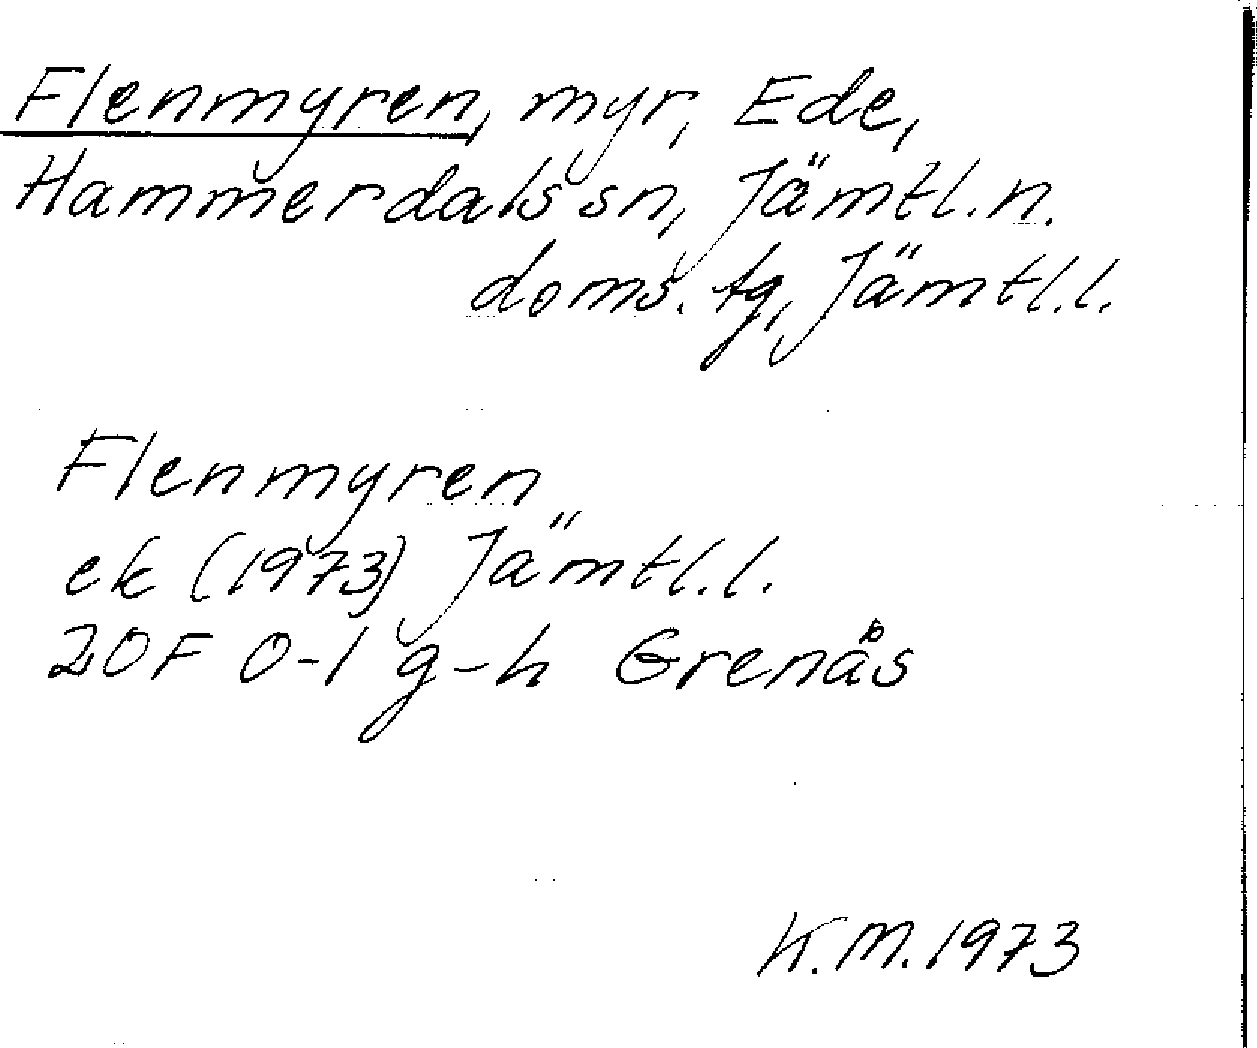 Flenmyren, myr, Ede,
Hammerdals sn, Jämtl. n.
doms. tg, Jämtl. l.
Flenmyren
ek (1973) Jämtl. l.
20F 0-1 g-h Grenås
K.M. 1973